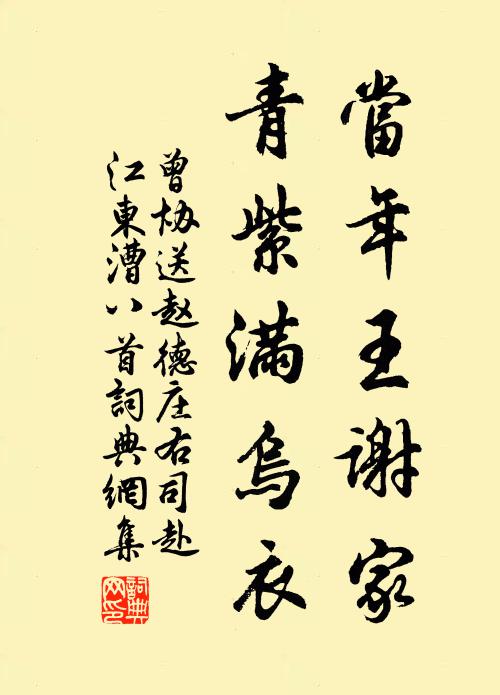 當年王谢家
青紫滿烏衣
曾协送赵德庄右司赴
江東漕八首詞典網集
詞典網印